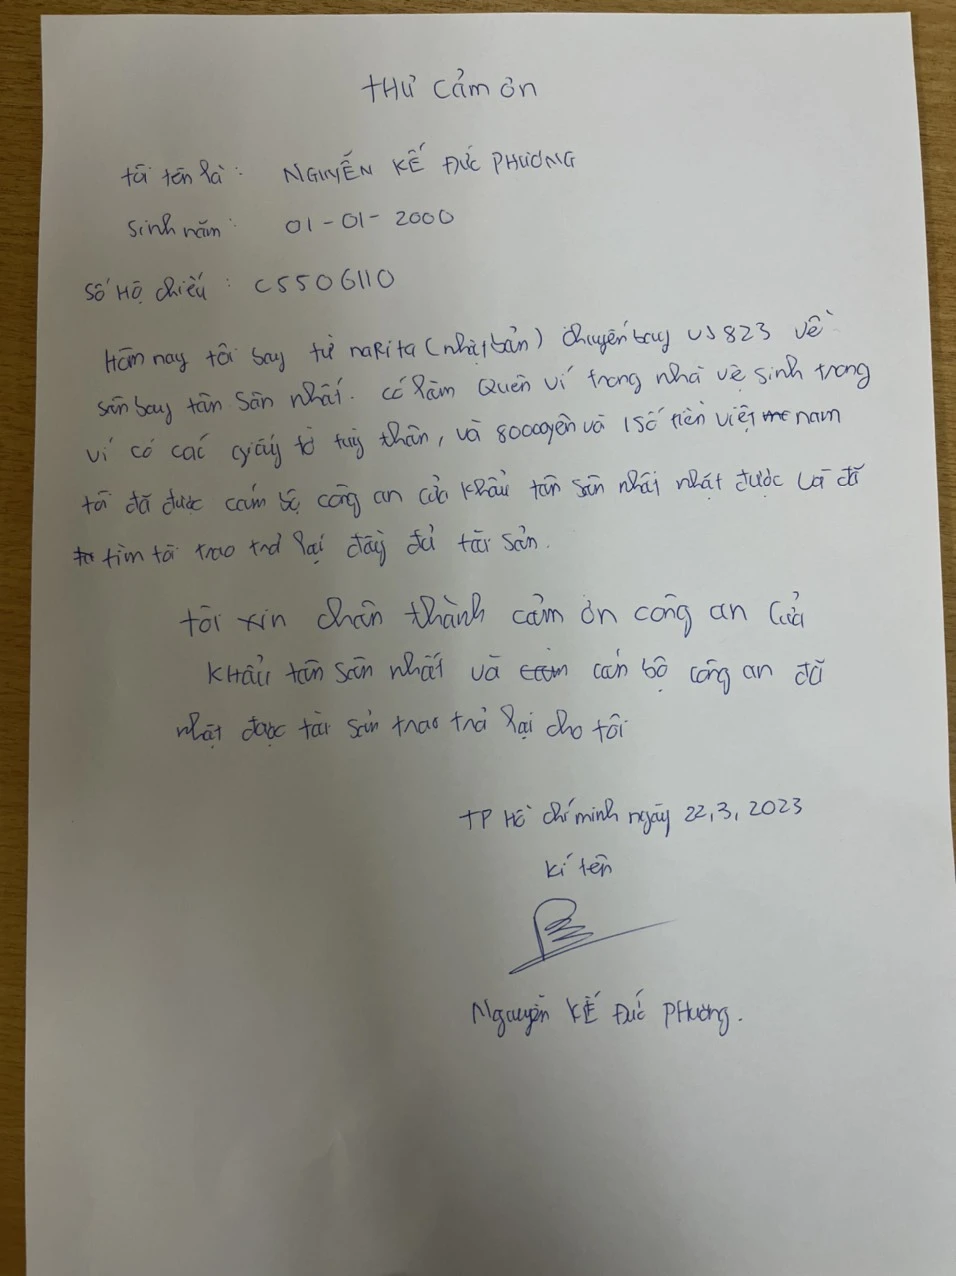 THƯ Cảm ơn
tôi tên là: NGUYỄN KẾ ĐỨC PHƯƠNG
Sinh năm: 01-01-2000
Số Hộ chiếu: C5506110
Hôm nay tôi bay từ naRita (nhật bản) chuyến bay VJ 823 về
sân bay tân sân nhất. có làm Quên ví trong nhà vệ sinh trong
ví có các giấy tờ tùy thân, và 8000yên và 1 số tiền việt nam
tôi đã được cán bộ công an cửa Khẩu tân sân nhất nhặt được và đã
tìm tôi trao trả lại đầy đủ tài sản.
tôi xin chân thành cảm ơn công an Cửa
KHẩu tân sân nhất và cán bộ công an đã
nhặt được tài sản trao trả lại cho tôi
TP Hồ chí minh ngày 22,3,2023
kí tên
Nguyễn KẾ Đức PHương.